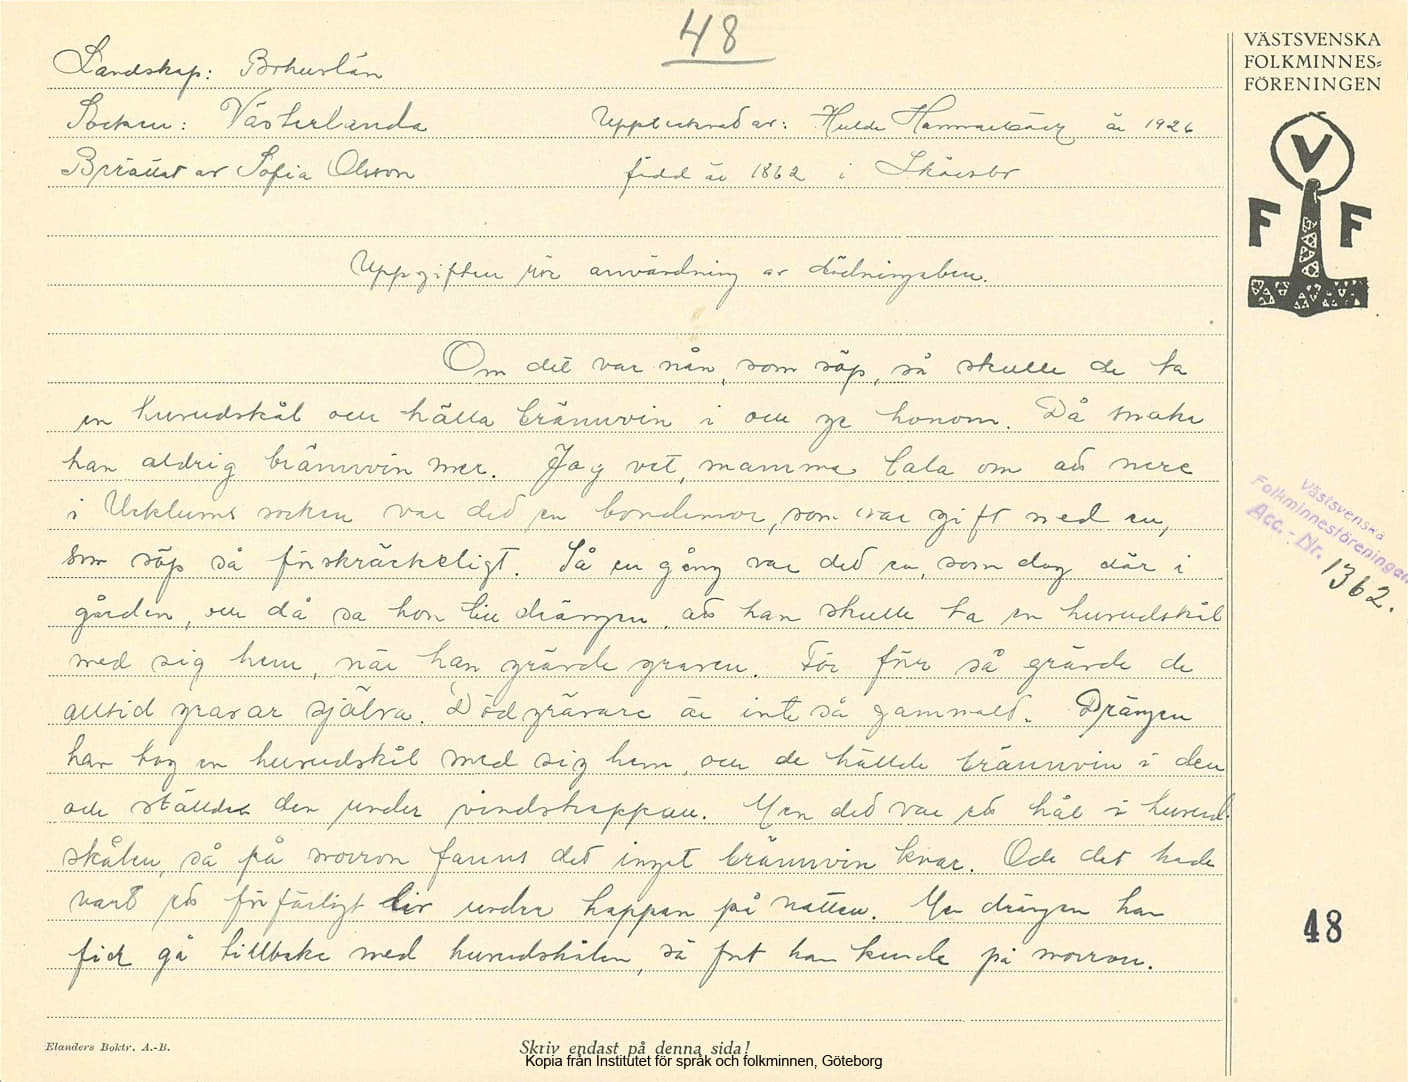 48
VÄSTSVENSKA
FOLKMINNES=
FÖRENINGEN
V
F F
Landskap: Bohuslän
Socken: Västerlanda Upptecknad av: Hulda Hammarbäck år 1926
Berättat av Sofia Olsson född år 1862 i
Uppgiften rör användning av dödningaben.
Om det var nån, som söp, så skulle de ta
en huvudskål och hälla brännvin i och ge honom. Då smaka
han aldrig brännvin mer. Jag vet, mamma tala om att nere
i Ucklums socken var det en bondemor, som var gift med en,
som söp så förskräckeligt. Så en gång var det en, som dog där i
gården, och då sa hon till drängen, att han skulle ta en huvudskål
med sig hem, när han grävde graven. För förr så grävde de
alltid gravar själva. Dödgrävare är inte så gammalt. Drängen
han tog en huvudskål med sig hem, och de hällde brännvin i den
och ställde den under vindstrappan. Men det var ett hål i huvud-
skålen, så på morron fanns det inget brännvin kvar. Och det hade
vart ett förfärligt liv under trappan på natten. Men drängen han
fick gå tillbaka med huvudskålen, så fort han kunde på morron.
Västsvenska
Folkminnesföreningen
Acc.-Nr. 1362.
48
Elanders Boktr. A.-B.
Skriv endast på denna sida!
Kopia från Institutet för språk och folkminnen, Göteborg